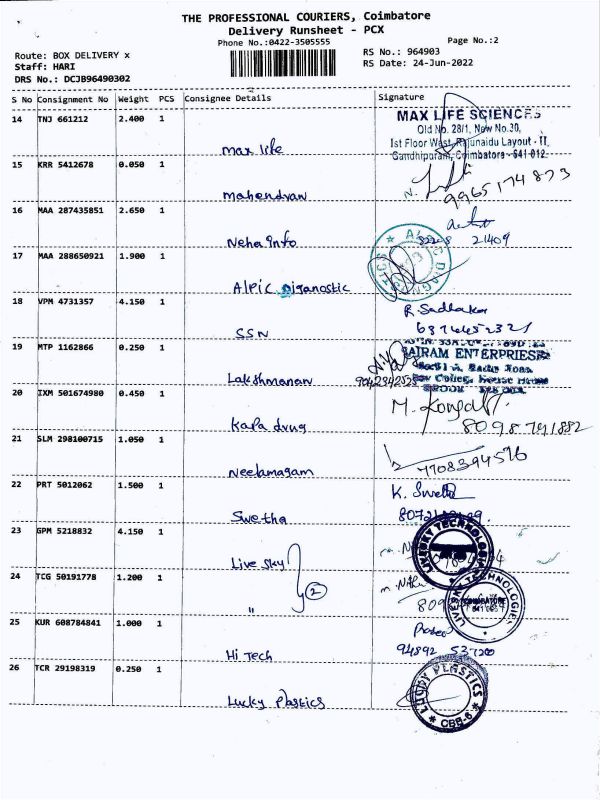 THE PROFESSIONAL COURIERS, Coimbatore
Delivery Runsheet - PCX
Phone No.:0422-3505555
Page No.:2
Route: BOX DELIVERY x
RS No.: 964903
Staff: HARI
RS Date: 24-Jun-2022
DRS No.: DCJB96490302
S No Consignment No Weight PCS Consignee Details Signature
14 TNJ 661212 2.400 1
max life
MAX LIFE SCIENCES
Old No. 28/1, New No.30,
Ist Floor West, Rajunaidu Layout - II,
Gandhipuram, Coimbatore - 641 012.
15 KRR 5412678 0.050 1
mahendran
9965174873
16 MAA 287435851 2.650 1
Neha Info
21409
17 MAA 288650921 1.900 1
Alpic Diganostic
18 VPM 4731357 4.150 1
SSN
R. Sadhakar
6374452321
19 MTP 1162866 0.250 1
Lakshmanan
SAIRAM ENTERPRISES
9042342525
20 IXM 501674980 0.450 1
Kapa drug
M.
8098741882
21 SLM 298100715 1.050 1
Neelamagam
7708394576
22 PRT 5012062 1.500 1
Swetha
K. Swetha
23 GPM 5218832 4.150 1
Live sky
LIVESKY TECHNOLOGIES
24 TCG 50191778 1.200 1
" 2
LIVESKY TECHNOLOGIES
25 KUR 608784841 1.000 1
Hi Tech
94892 53720
26 TCR 29198319 0.250 1
Lucky Plastics
PLASTICS
CBE-6